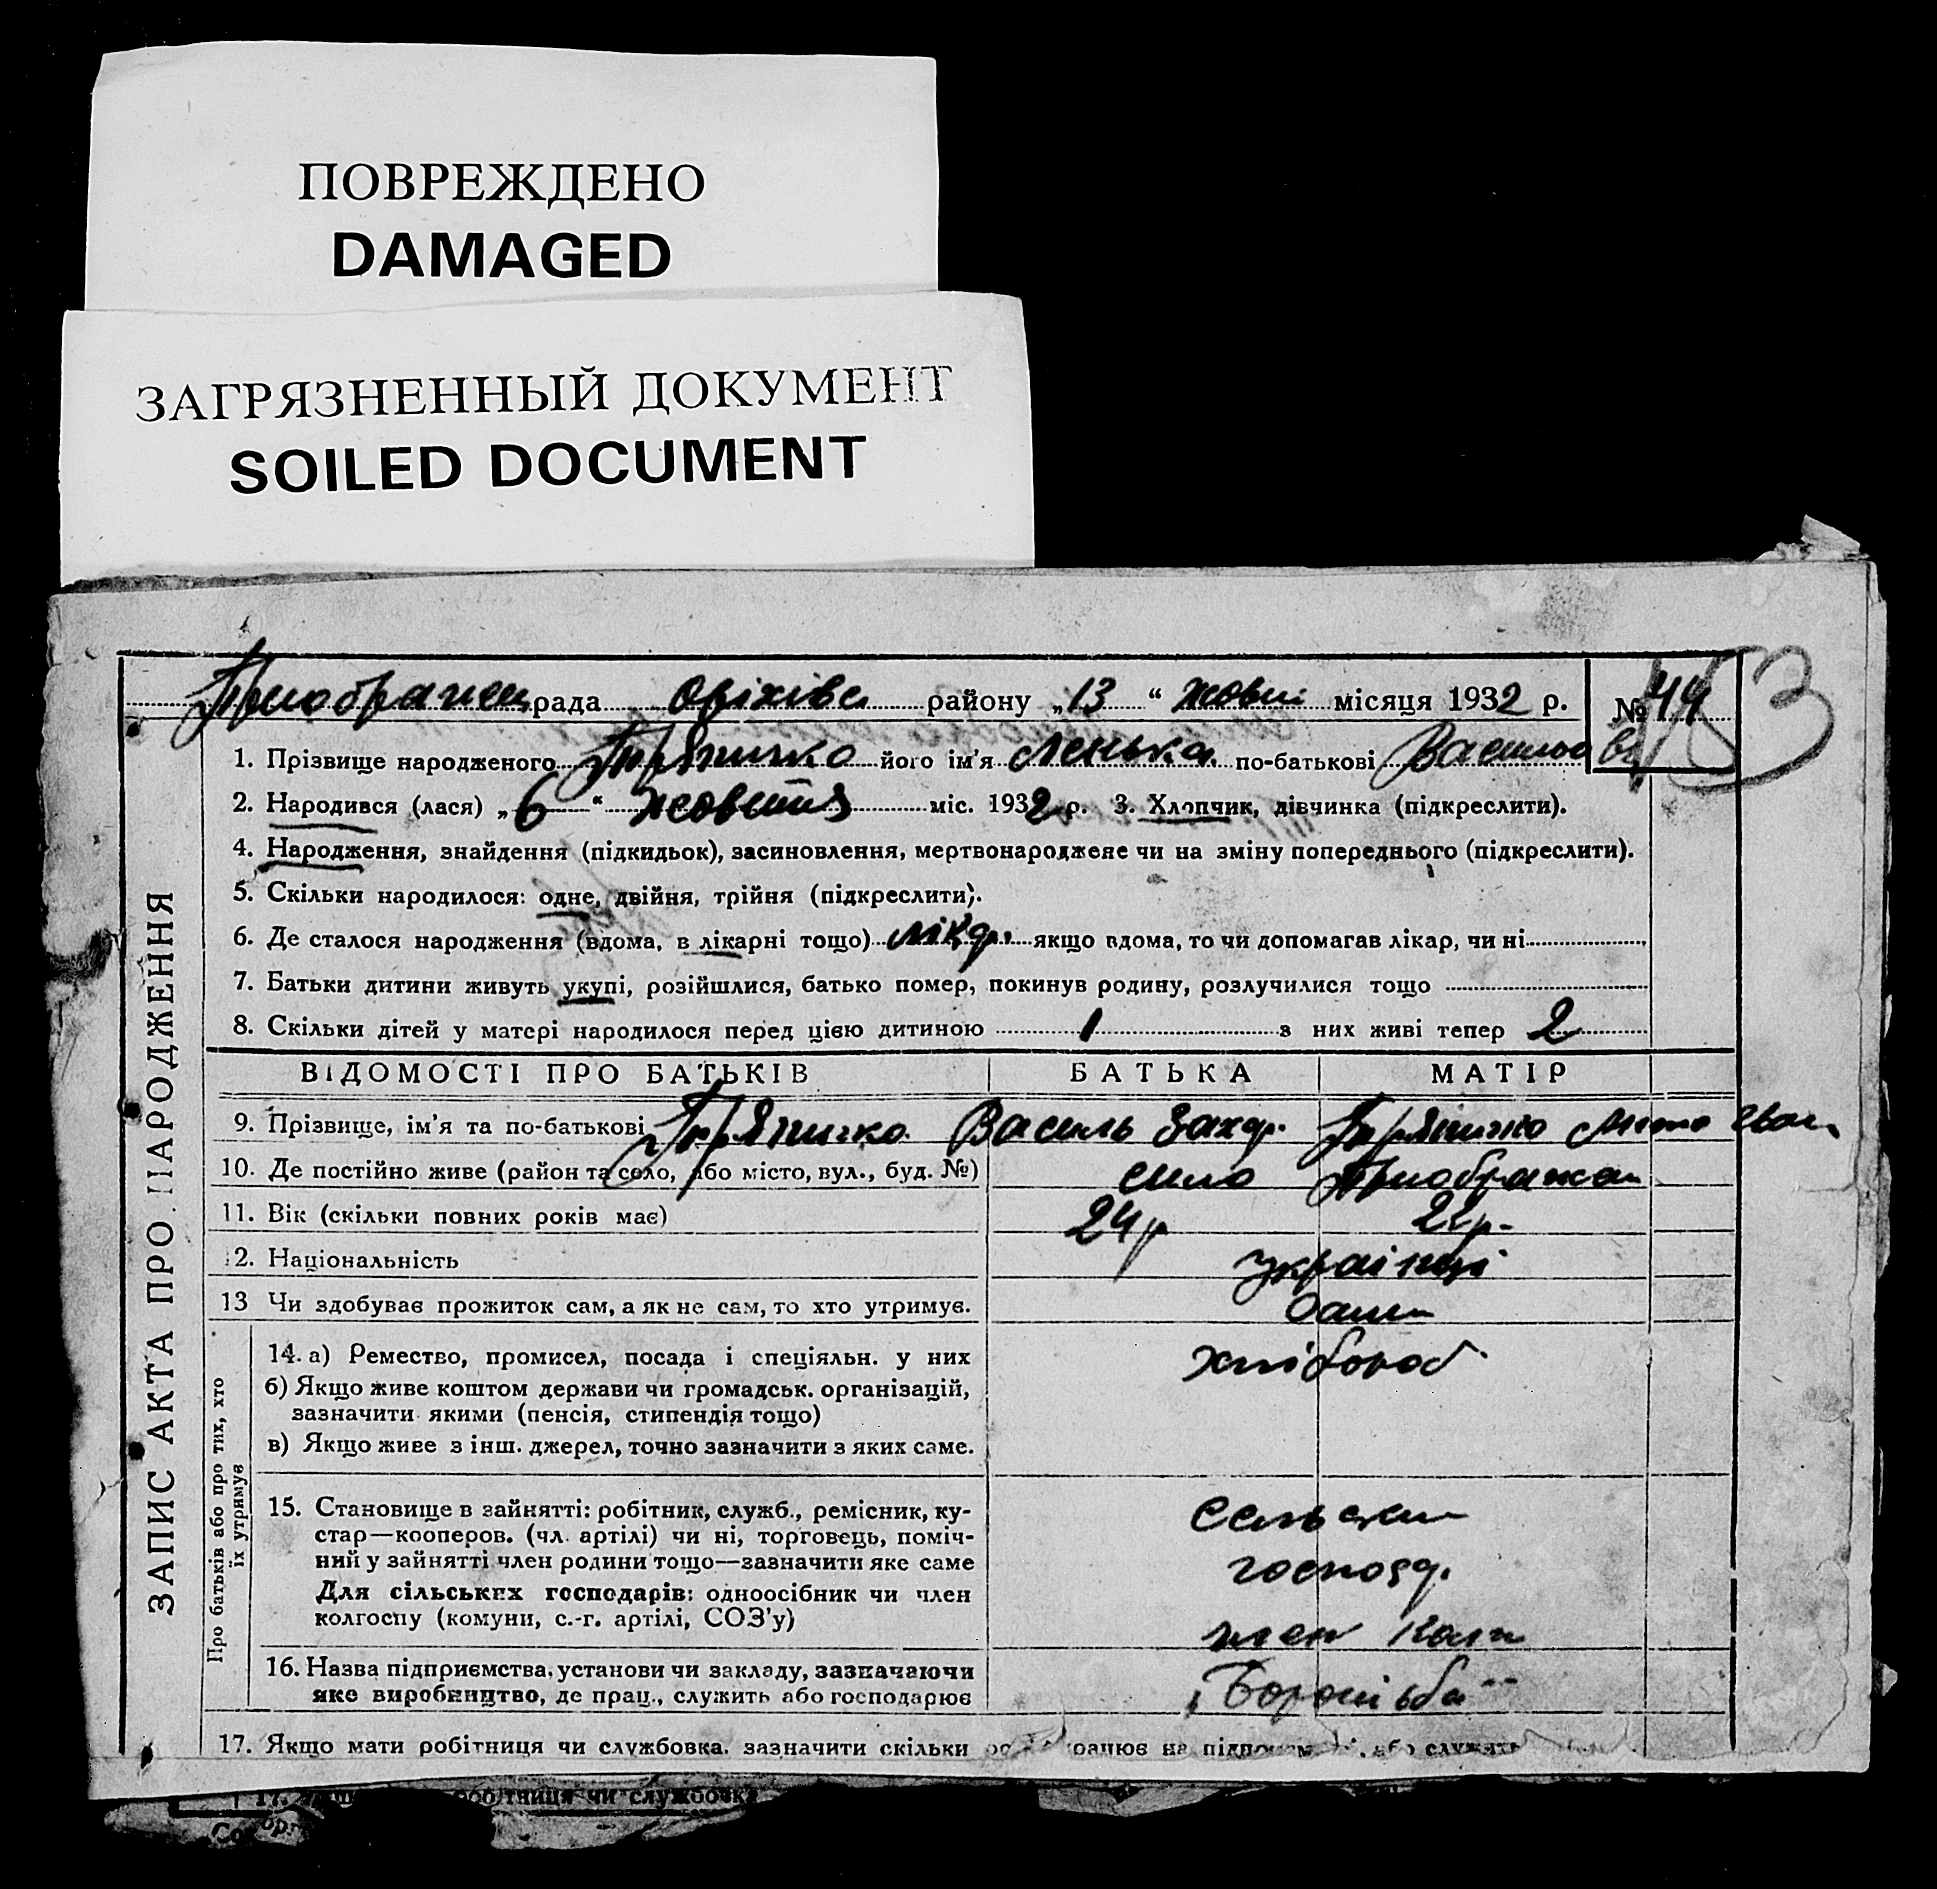 ПОВРЕЖДЕНО
DAMAGED
ЗАГРЯЗНЕННЫЙ ДОКУМЕНТ
SOILED DOCUMENT
рада Оріхівс району „13“ Жовт місяця 1932 р. № 44
1. Прізвище народженого Пряничко його ім'я Ленька по-батькові Васильов
2. Народився (лася) „6“ Жовтня міс. 1932 р. 3. Хлопчик, дівчинка (підкреслити).
4. Народження, знайдення (підкидьок), засиновлення, мертвонароджене чи на зміну попереднього (підкреслити).
5. Скільки народилося: одне, двійня, трійня (підкреслити).
6. Де сталося народження (вдома, в лікарні тощо) лікар. якщо вдома, то чи допомагав лікар, чи ні
7. Батьки дитини живуть укупі, розійшлися, батько помер, покинув родину, розлучилися тощо
8. Скільки дітей у матері народилося перед цією дитиною 1 з них живі тепер 2
ВІДОМОСТІ ПРО БАТЬКІВ БАТЬКА МАТІР
9. Прізвище, ім'я та по-батькові Пряничко Василь Захар. Пряничко Іван
10. Де постійно живе (район та село, або місто, вул., буд. №) село
11. Вік (скільки повних років має) 24 р 22 р.
12. Національність українці
13 Чи здобував прожиток сам, а як не сам, то хто утримує. Сами
14. а) Ремество, промисел, посада і спеціяльн. у них хлібороб
б) Якщо живе коштом держави чи громадськ. організацій,
зазначити якими (пенсія, стипендія тощо)
в) Якщо живе з інш. джерел, точно зазначити з яких саме.
15. Становище в зайнятті: робітник, служб., ремісник, ку-
стар—кооперов. (чл. артілі) чи ні, торговець, поміч-
ний у зайнятті член родини тощо—зазначити яке саме
Для сільських господарів: одноосібник чи член
колгоспу (комуни, с.-г. артілі, СОЗ'у)
господ.
член Колг
16. Назва підприємства, установи чи закладу, зазначаючи
яке виробництво, де прац., служить або господарює
„Боротьба“
17. Якщо мати робітниця чи службовка, зазначити скільки
ЗАПИС АКТА ПРО НАРОДЖЕННЯ
Про батьків або про тих, хто
їх утримує
робітниця чи службовка